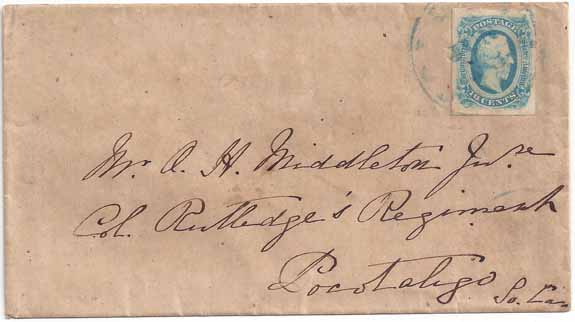 POSTAGE
10 CENTS
Mr O. H. Middleton Junr
Col. Rutledge's Regiment
Pocotaligo
So. Car